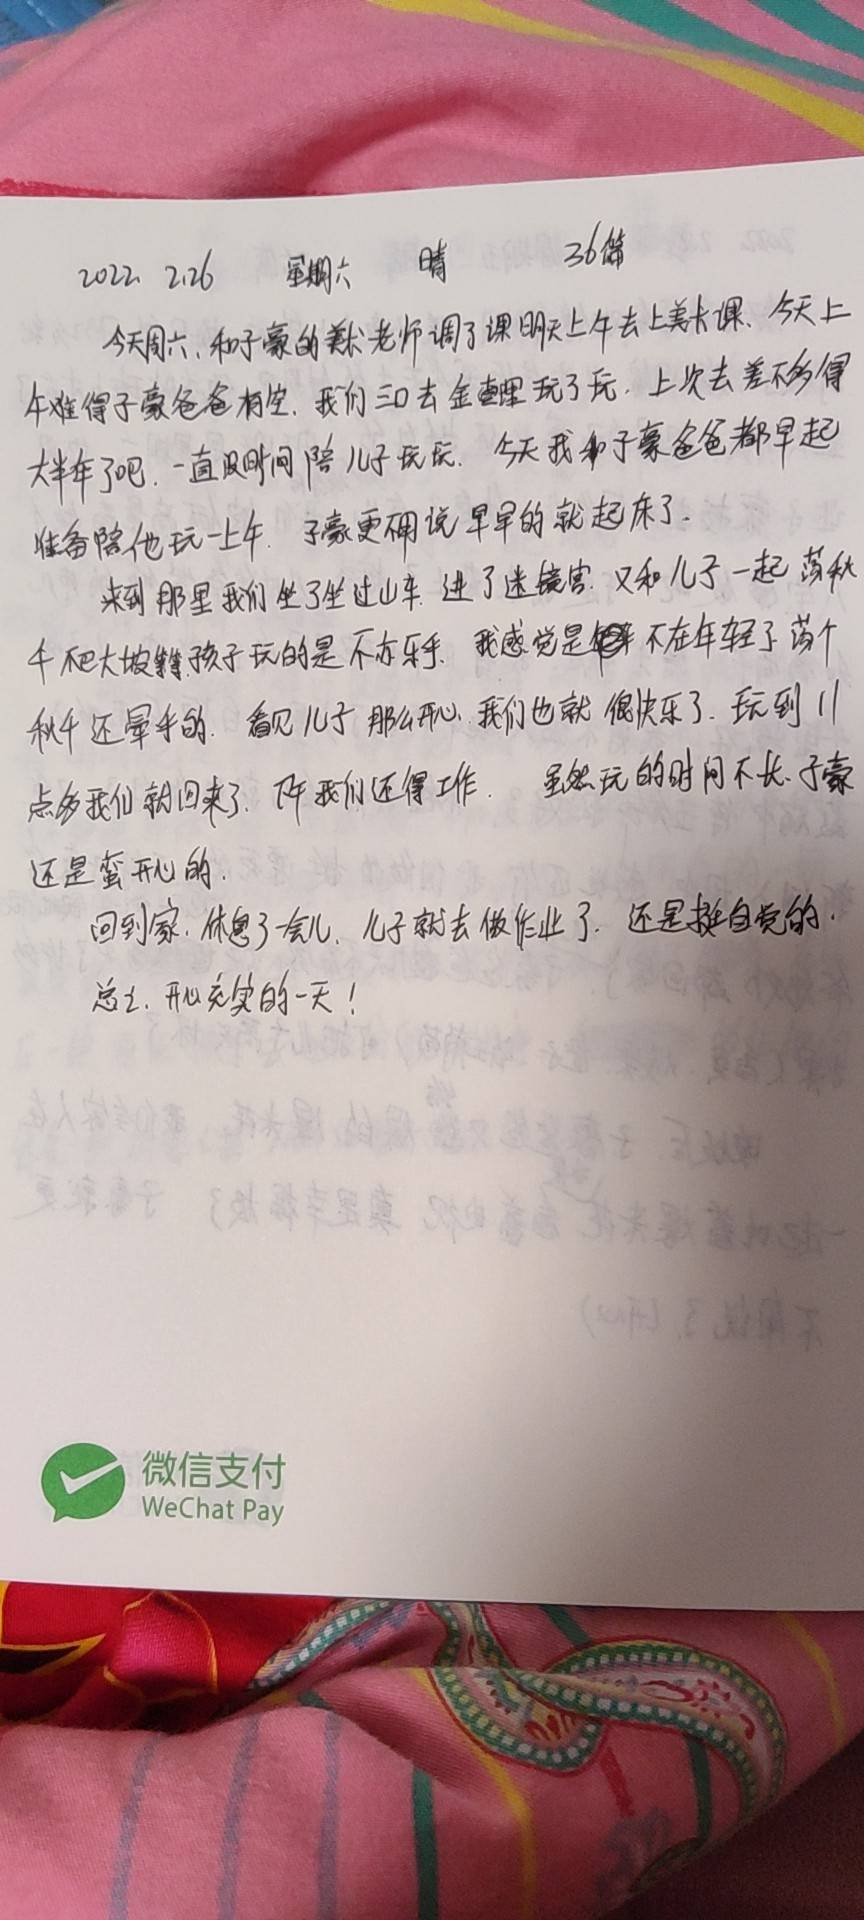 2022. 2.26 星期六 晴 36篇
今天周六、和子豪的美术老师调了课明天上午去上美术课、今天上
午难得子豪爸爸有空、我们三口去金 里玩了玩. 上次去差不多得
大半年了吧. 一直没时间陪儿子玩玩. 今天我和子豪爸爸都早起
准备陪他玩一上午. 子豪更不用说早早的就起床了.
来到那里我们坐了坐过山车. 进了迷镜宫. 又和儿子一起荡秋
千爬大坡等.孩子玩的是不亦乐乎. 我感觉是 不在年轻了荡个
秋千还晕乎的. 看见儿子那么开心.我们也就很快乐了. 玩到11
点多我们就回来了. 下午我们还得工作. 虽然玩的时间不长.子豪
还是蛮开心的.
回到家.休息了一会儿、儿子就去做作业了. 还是挺自觉的.
总之、开心充实的一天！
微信支付
WeChat Pay